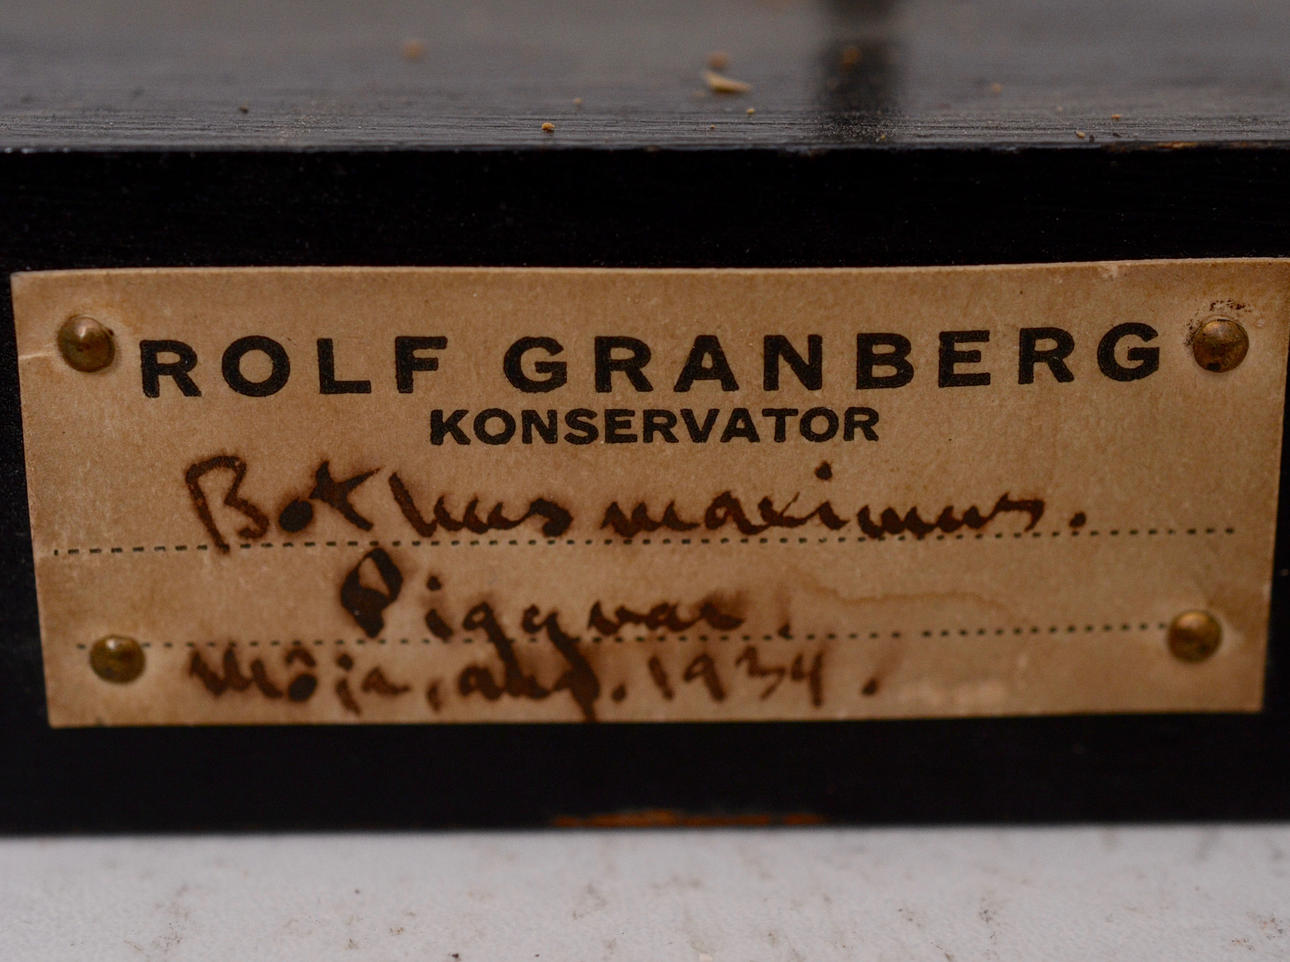 ROLF GRANBERG
KONSERVATOR
Bothus maximus.
Piggvar.
Möja, aug. 1934.